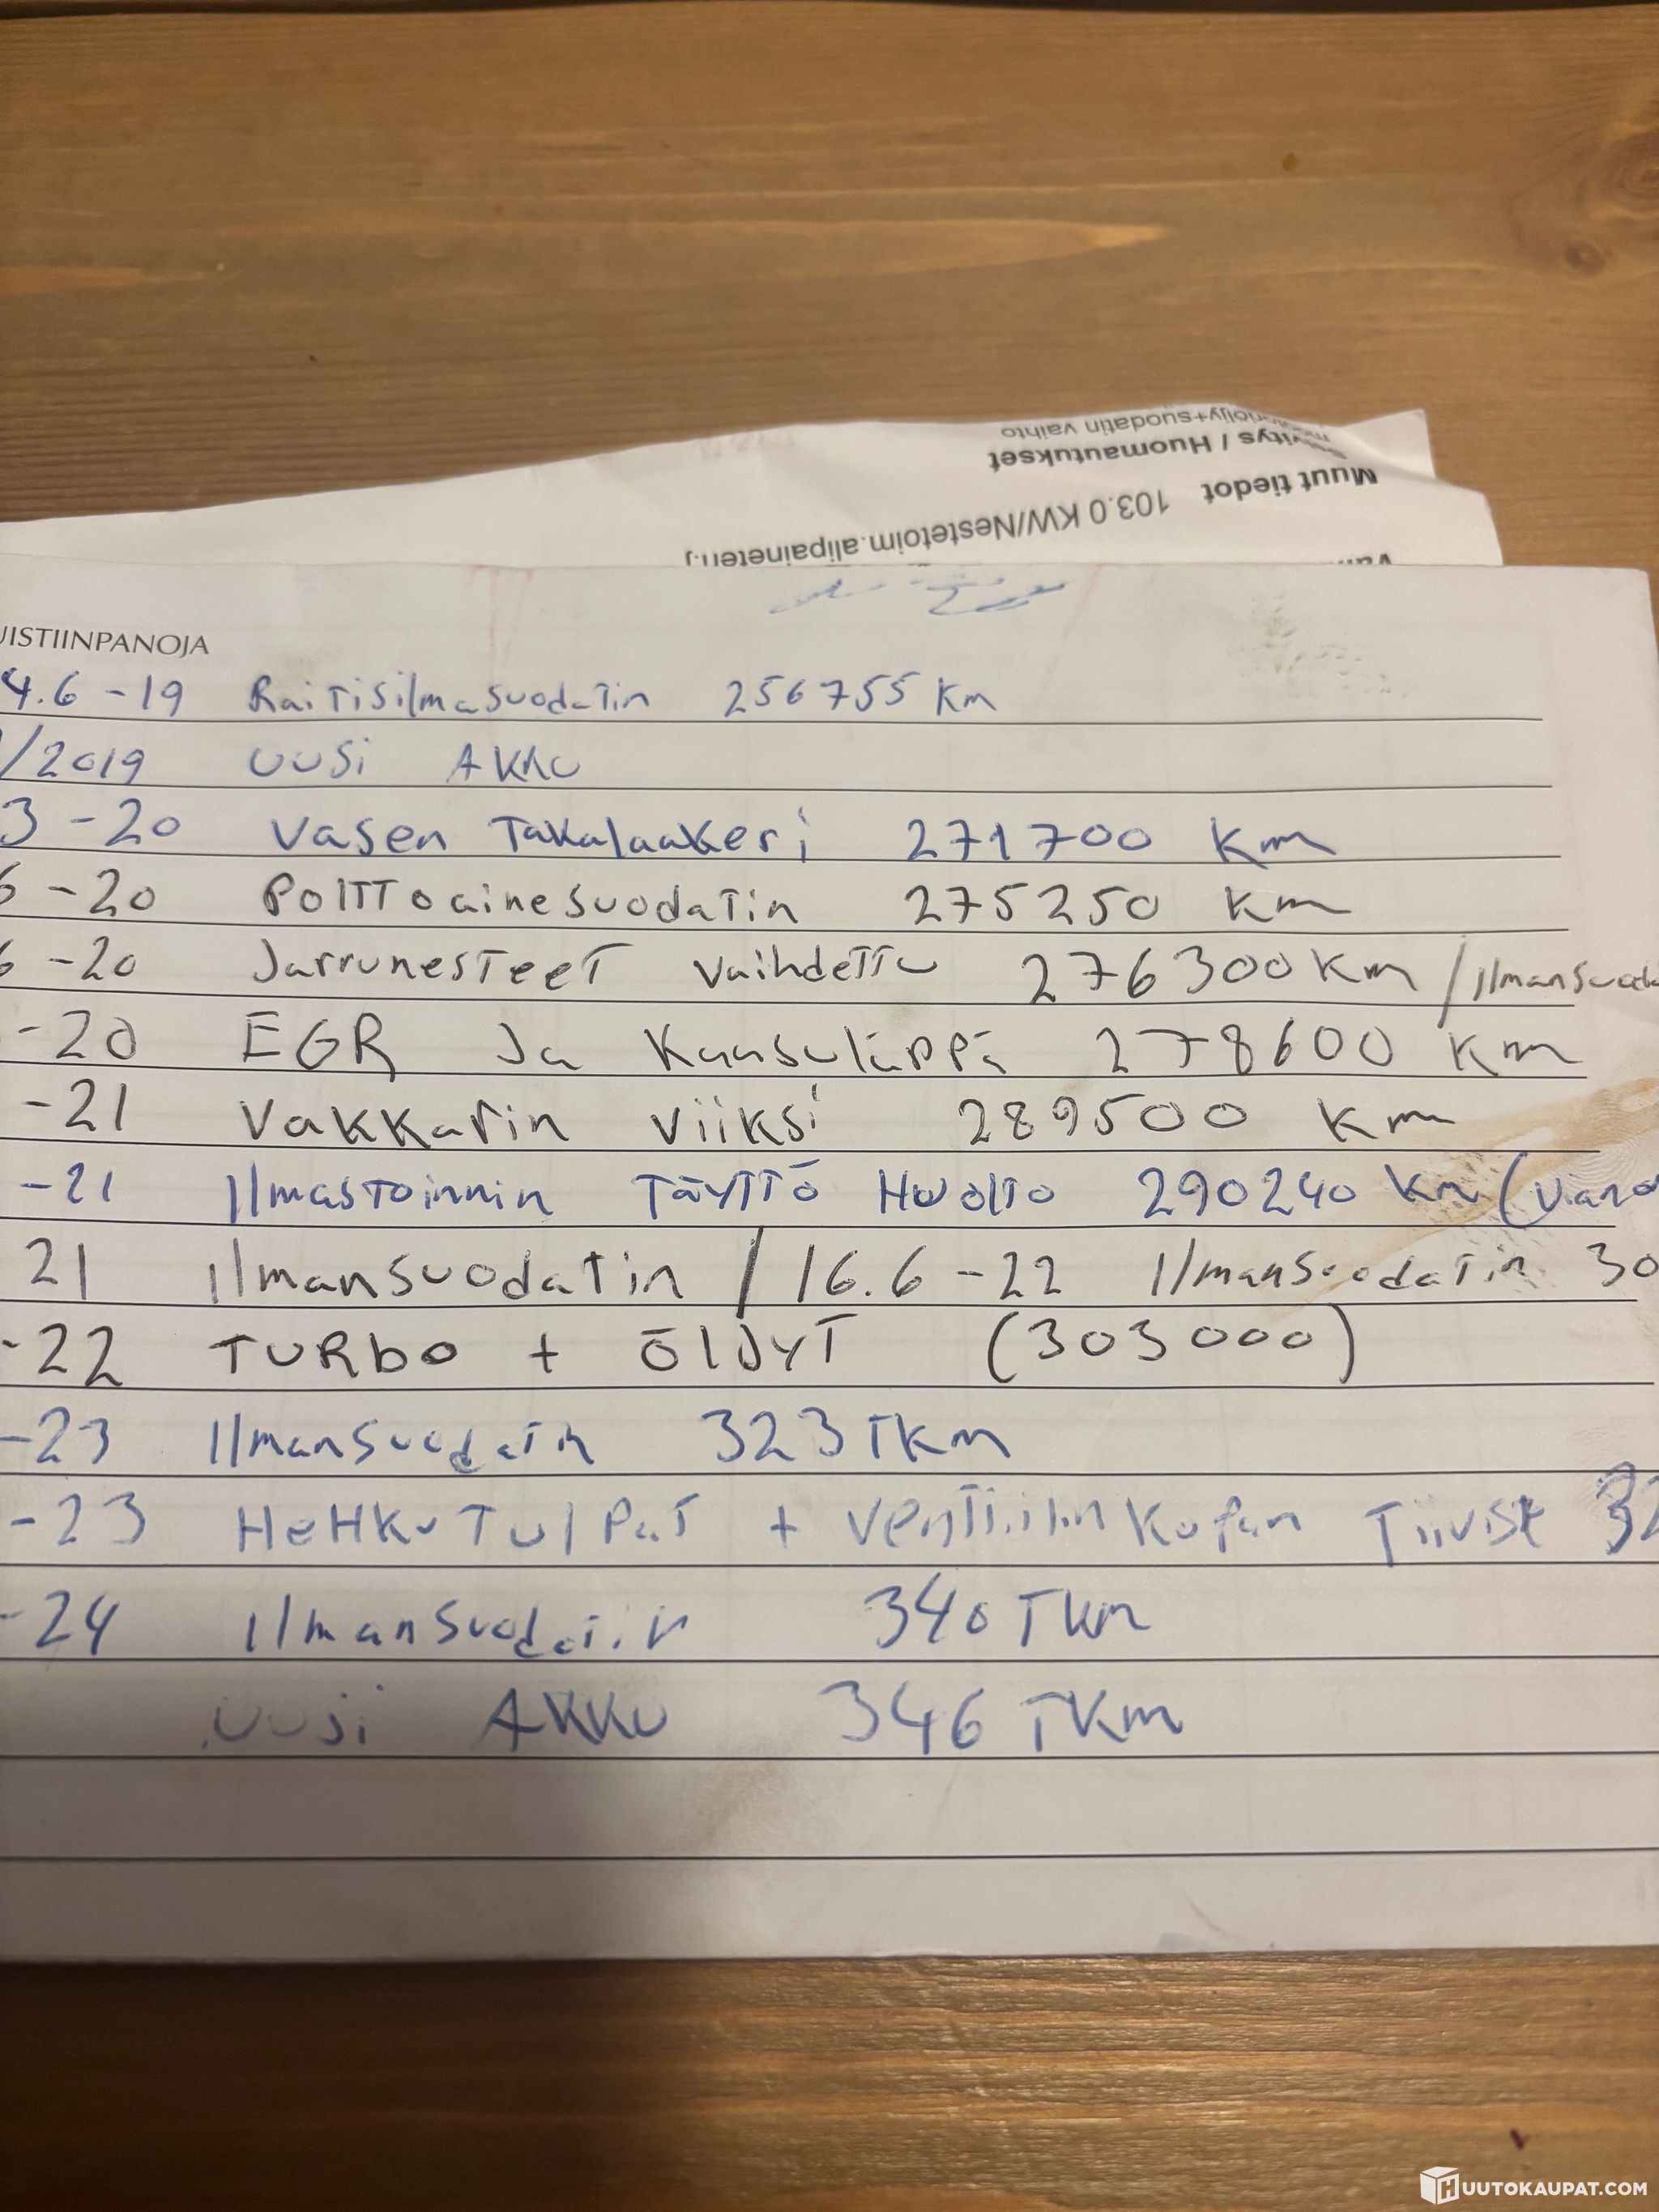 moottoriöljy+suodatin vaihto
Selvitys / Huomautukset
Muut tiedot 103.0 KW/Nestetoim.alipaineteh.j
UISTIINPANOJA
4.6 -19 Raitisilmasuodatin 256755 Km
/2019 UUSi AKKU
3 -20 Vasen Takalaakeri 271700 Km
6 -20 PolTToainesuodaTin 275250 Km
6 -20 JarrunesTeeT VaihdeTTu 276300 Km / Ilmansuoda
-20 EGR Ja Kaasuläppä 278600 Km
-21 Vakkarin Viiksi 289500 Km
-21 IlmasToinnin TäyTTö HuolTo 290240 Km (Viano
21 IlmansuodaTin / 16.6 -22 IlmansuodaTin 30
-22 TURbo + ÖlJyT (303000)
-23 IlmansuodaTin 323 TKm
-23 HeHKuTulPaT + VenTiilin Kopan Tiiviste 32
-24 Ilmansuodatin 340 TKm
UUSi AKKU 346 TKm
HUUTOKAUPAT.COM